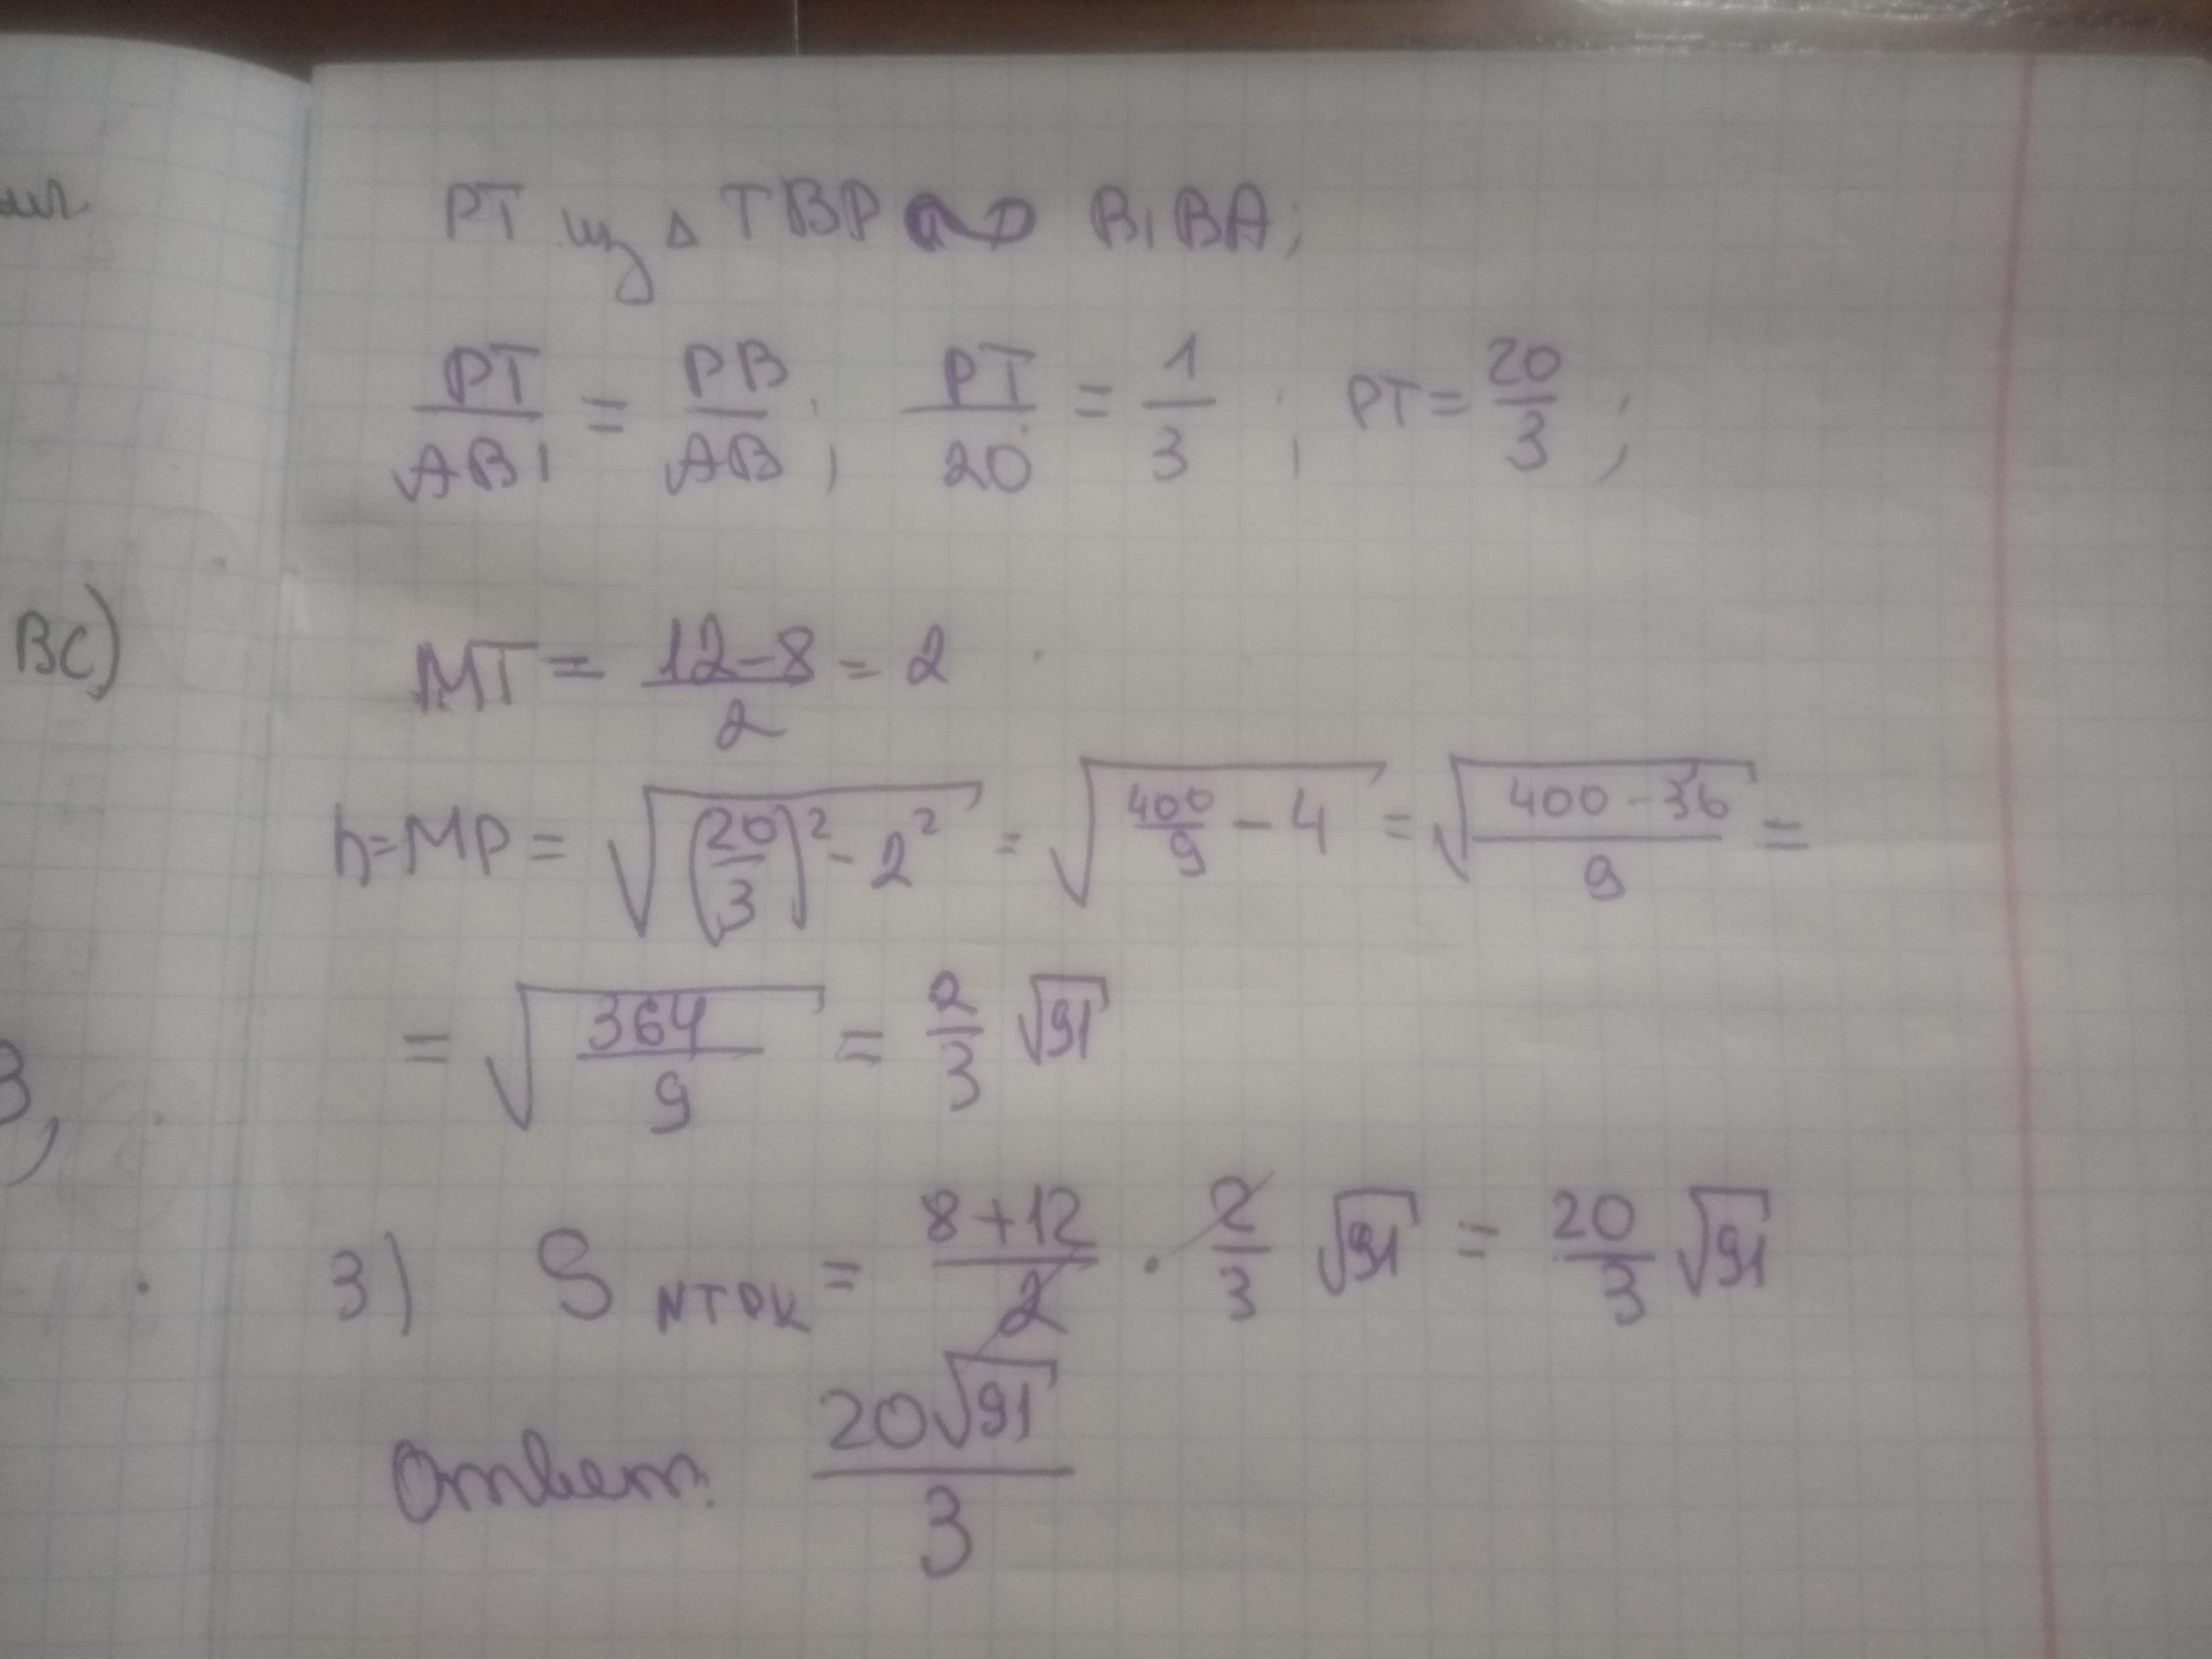 PT из △ TBP ∾ B₁BA;
PT/AB₁ = PB/AB; PT/20 = 1/3; PT = 20/3;
BC)
MT = (12-8)/2 = 2
h=MP = √((20/3)² - 2²) = √(400/9 - 4) = √((400-36)/9) =
= √(364/9) = 2/3 √91
3) S NTPK = (8+12)/2 · 2/3 √91 = 20/3 √91
Ответ: 20√91/3